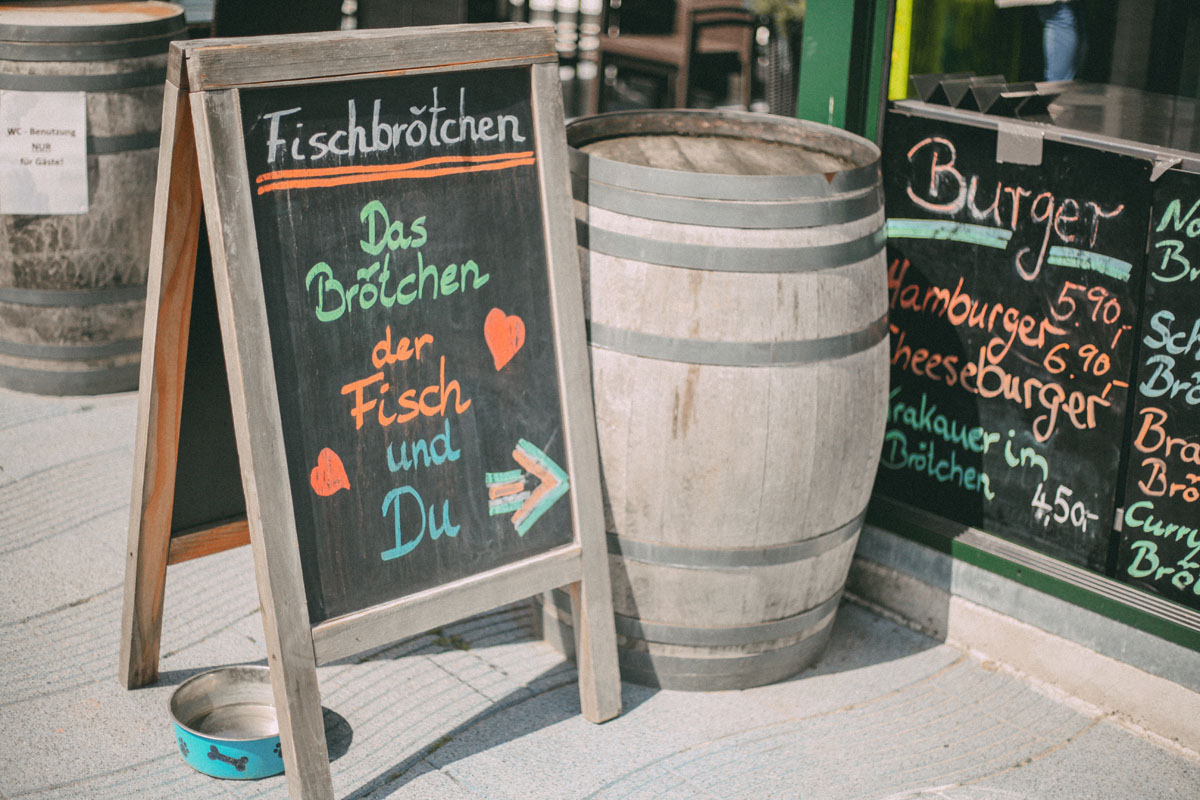 WC - Benutzung
NUR
für Gäste!
Fischbrötchen
Das
Brötchen
der
Fisch
und
Du
Burger
5.90,-
Hamburger
6.90,-
Cheeseburger
Krakauer im
Brötchen
4,50,-
Curry